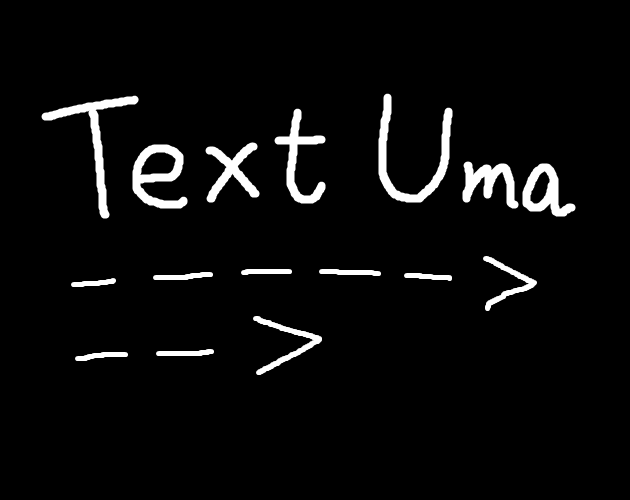 Text Uma
----->
-->